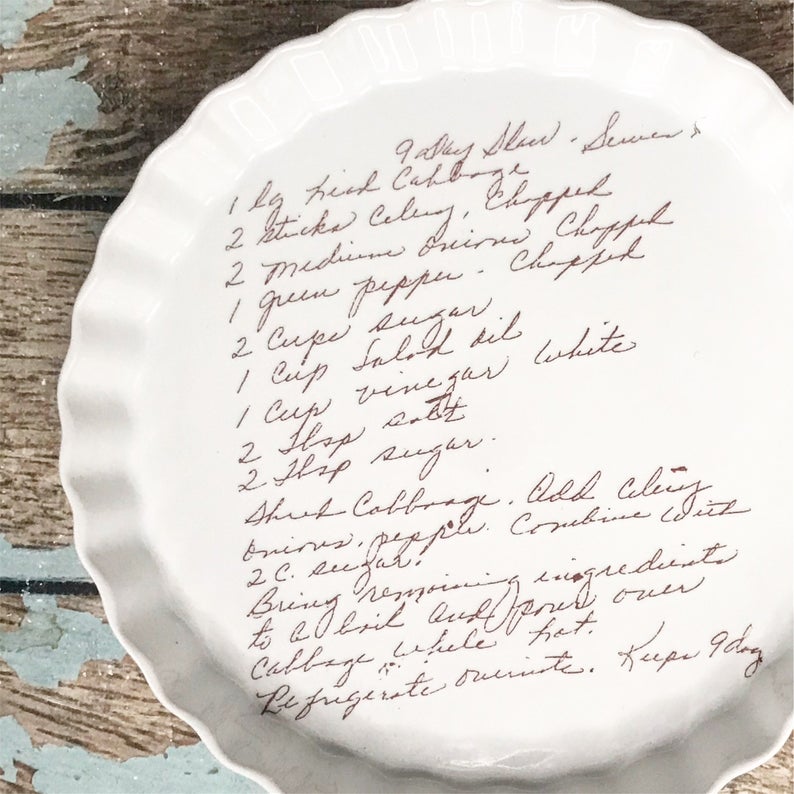 9 Day Slaw - Serves
1 lg head Cabbage
2 sticks Celery, Chopped
2 medium onions Chopped
1 green pepper - Chopped
2 cups sugar
1 cup Salad oil
1 cup vinegar White
2 Tbsp salt
2 Tbsp sugar.
Shred Cabbage. Add Celery
onions, pepper. Combine with
2 C. sugar.
Bring remaining ingredients
to a boil and pour over
Cabbage while hot.
Refrigerate overnite. Keeps 9 day